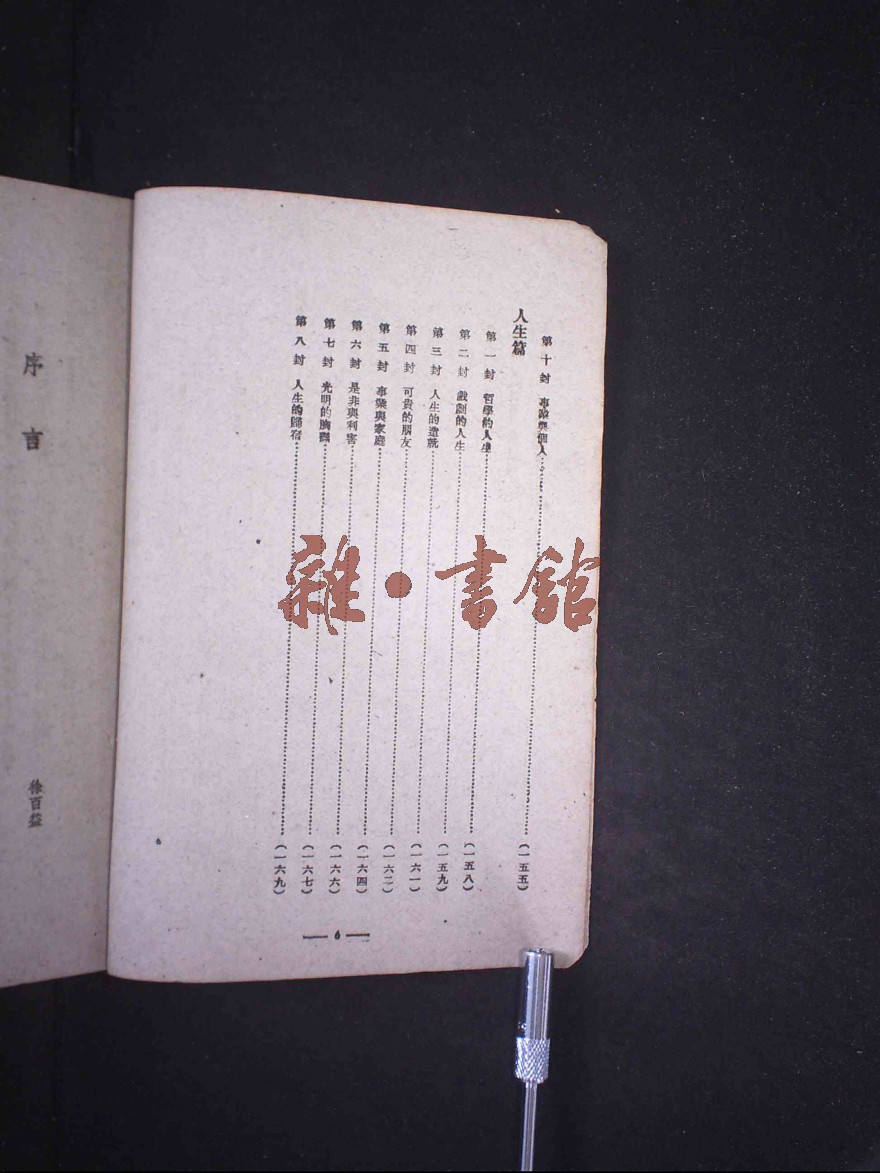 第十封 事業與個人……(一五五)
人生篇
第一封 哲學的人生……(一五八)
第二封 戲劇的人生……(一五九)
第三封 人生的造就……(一六一)
第四封 可貴的朋友……(一六二)
第五封 事業與家庭……(一六四)
第六封 是非與利害……(一六六)
第七封 光明的胸襟……(一六七)
第八封 人生的歸宿……(一六九)
— 6 —
序言
徐百益
雜·書館